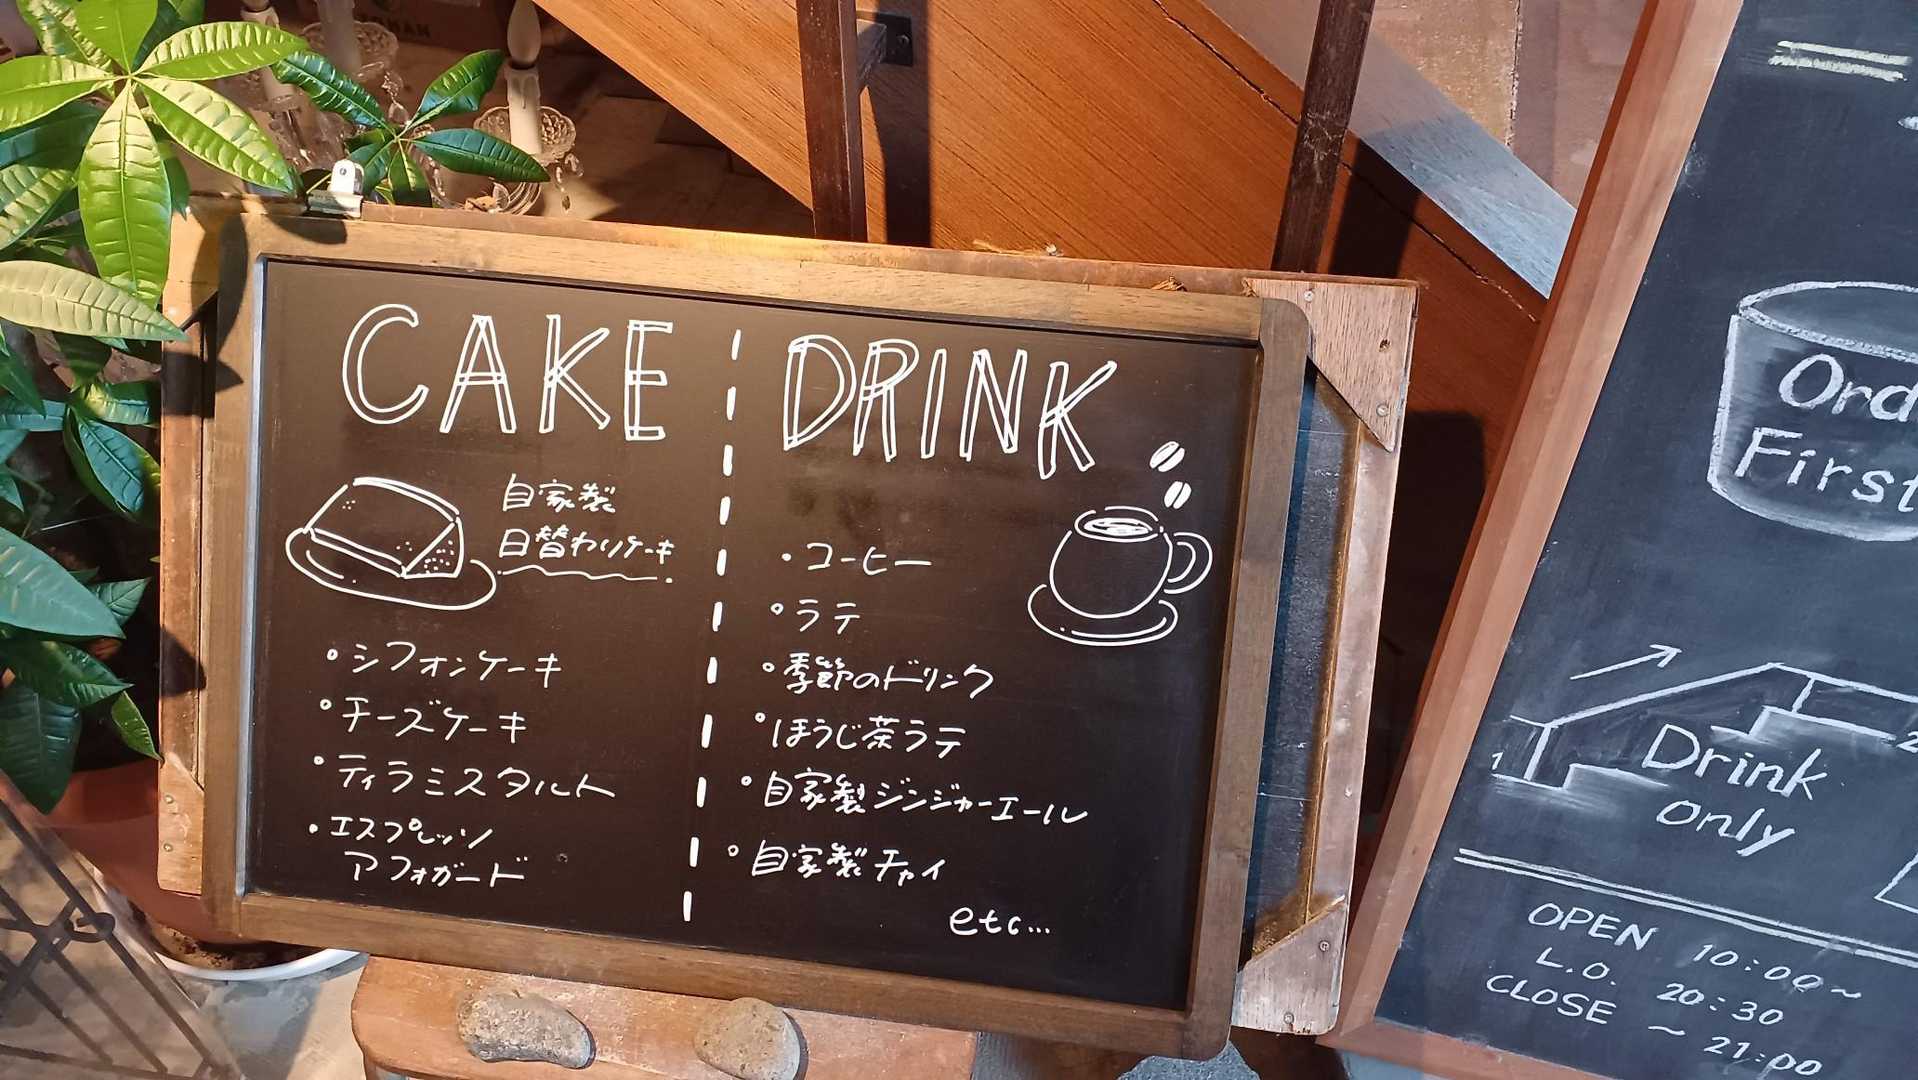 CAKE
自家製
日替わりケーキ
・シフォンケーキ
・チーズケーキ
・ティラミスタルト
・エスプレッソ
アフォガード
DRINK
・コーヒー
・ラテ
・季節のドリンク
・ほうじ茶ラテ
・自家製ジンジャーエール
・自家製チャイ
etc...
First
1
2
Drink
only
OPEN 10:00~
L.O. 20:30
CLOSE ~21:00